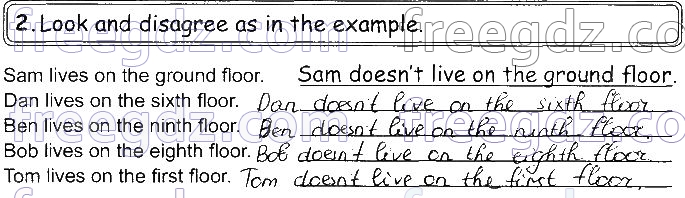 2. Look and disagree as in the example.
Sam lives on the ground floor. Sam doesn't live on the ground floor.
Dan lives on the sixth floor. Dan doesn't live on the sixth floor
Ben lives on the ninth floor. Ben doesn't live on the ninth floor.
Bob lives on the eighth floor. Bob doesn't live on the eighth floor.
Tom lives on the first floor. Tom doesn't live on the first floor.
freegdz.com freegdz.com
freegdz.com freegdz.com